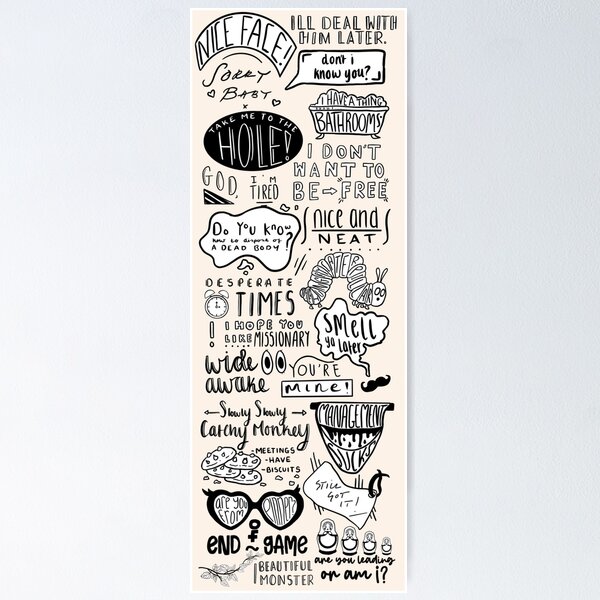 NICE FACE!
ILL DEAL WITH
HIM LATER.
SORRY
BABY
x
don't i
know you?
I HAVE A THING
BATHROOMS
TAKE ME TO THE
HOLE!
I DON'T
WANT TO
BE → FREE
GOD,
I'M
TIRED
DO YOU KNOW
how to dispose of
A DEAD BODY?
nice and
NEAT
DESPERATE
TIMES
!
I HOPE YOU
LIKE MISSIONARY
SMELL
ya later
wide
awake
YOU'RE
MINE!
Slowly Slowly
Catchy Monkey
MANAGEMENT
SUCKS
-MEETINGS
-HAVE
-BISCUITS
STILL
GOT
IT!
are you
FROM
PINNER?
END of GAME
are you leading
or am i?
BEAUTIFUL
MONSTER